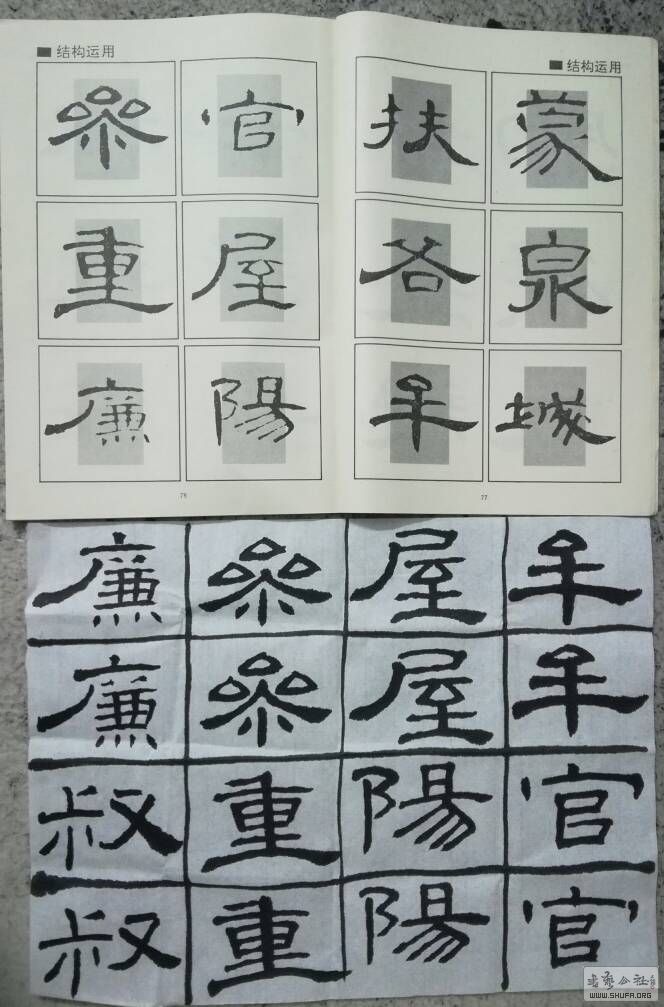 结构运用
參 官
重 屋
廉 陽
76
结构运用
扶 蒙
泉
城
77
廉 參 屋
廉 參 屋
叔 重 陽 官
叔 重 陽 官
公社
WWW.SHUFA.ORG